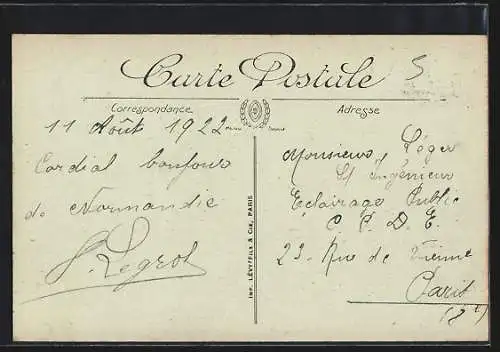 Carte Postale
Correspondance
Adresse
5
11 Août 1922
Cordial bonjour
de Normandie
Legros
IMP. LÉVY FILS & CIE, PARIS
Monsieur Léger
Ingénieur
Eclairage Public
C. P. D. E.
23 Rue de Vienne
Paris
(8e)